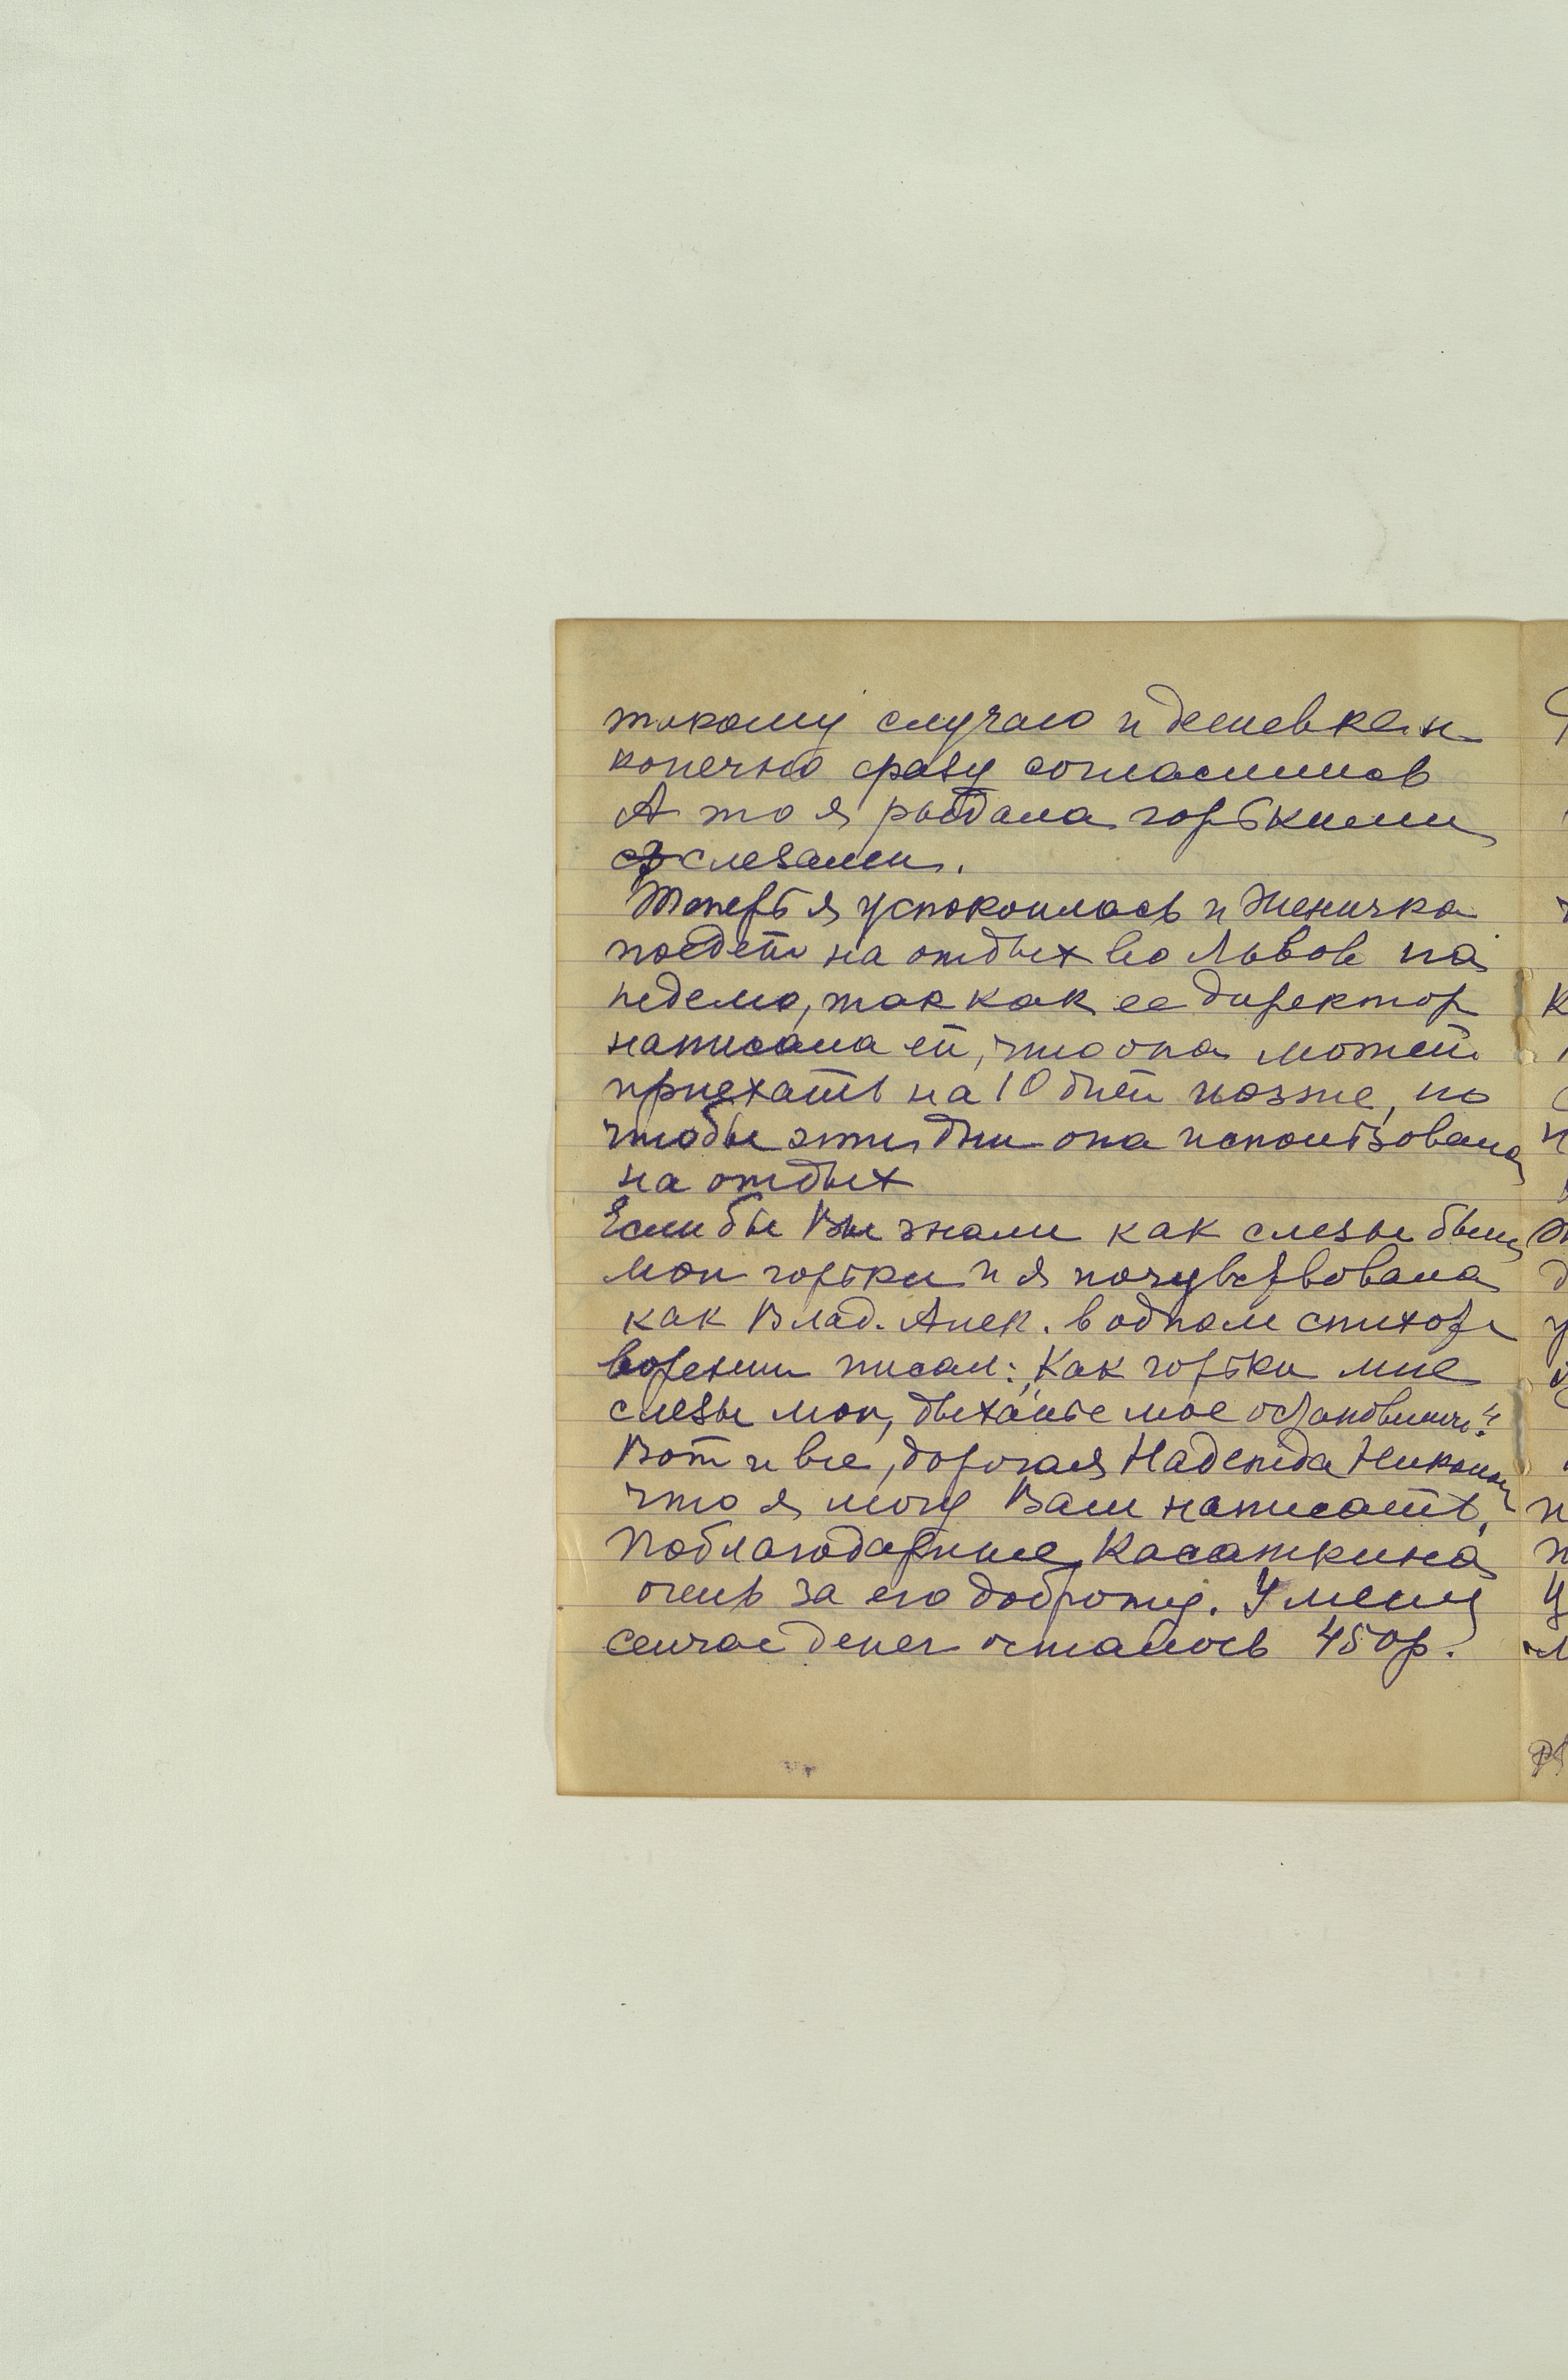 такому случаю и дешевке и
конечно сразу согласились
А то я рыдала горькими
слезами.
Теперь я успокоилась и Женичка
поедет на отдых во Львов на
неделю, так как ее директор
написала ей, что она может
приехать на 10 дней позже, но
чтобы эти дни она использовала
на отдых
Если бы Вы знали как слезы были
мои горьки и я почувствовала
как Влад. Алек. в одном стихотв
ворении писал: „Как горьки мне
слезы мои, дыханье мое остановили“
Вот и все, дорогая Надежда
что я могу Вам написать.
Поблагодарите Касаткина
очень за его доброту. У меня
сейчас денег осталось 450р.